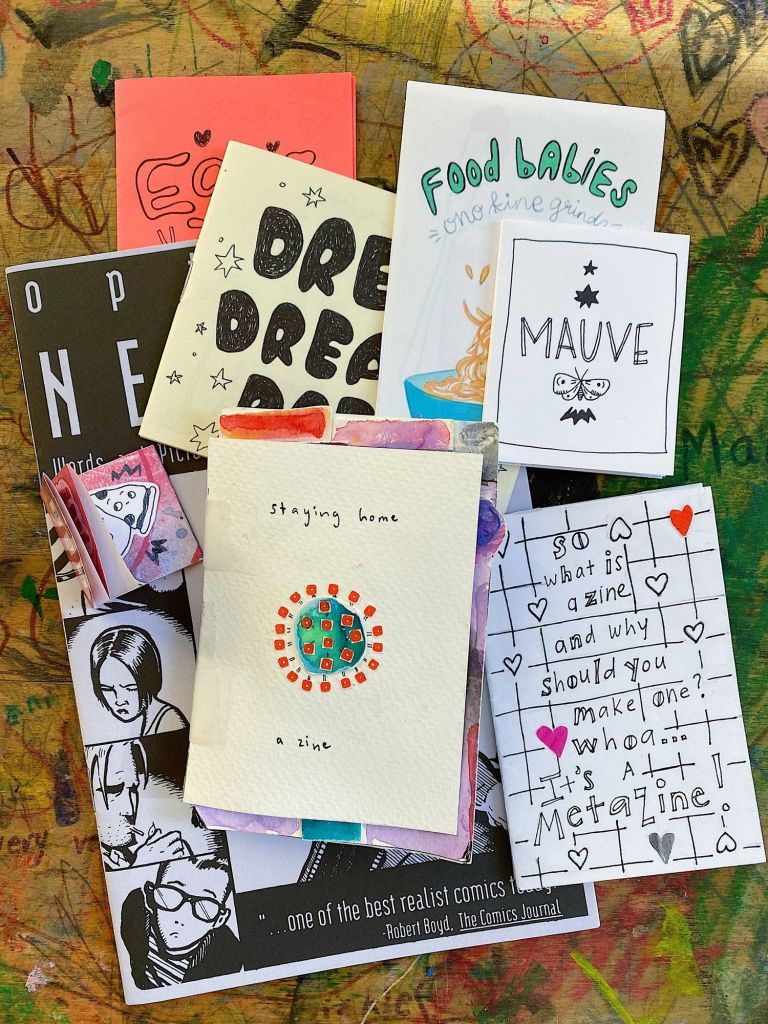 Food bAbies
ono kine grinds
DRE
DREA
MAUVE
O P
N E
Words
staying home
a zine
so
what is
a zine
and why
should you
make one?
whoa...
It's A
MetaZine!
"...one of the best realist comics
-Robert Boyd, The Comics Journal